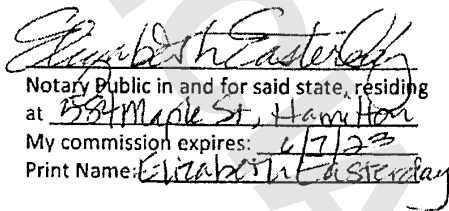 Elizabeth Easterday
Notary Public in and for said state, residing
at 534 Maple St, Hamilton
My commission expires: 6/7/23
Print Name: Elizabeth Easterday